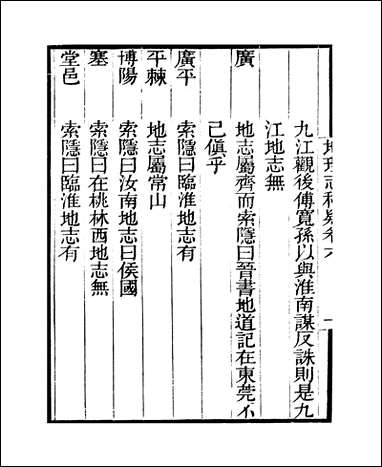 地理志稽疑卷六
九江觀後傅寬孫以與淮南謀反誅則是九
江地志無
廣 地志屬齊而索隱曰晉書地道記在東莞不
已傎乎
廣平 索隱曰臨淮地志有
平棘 地志屬常山
博陽 索隱曰汝南地志曰侯國
塞 索隱曰在桃林西地志無
堂邑 索隱曰臨淮地志有